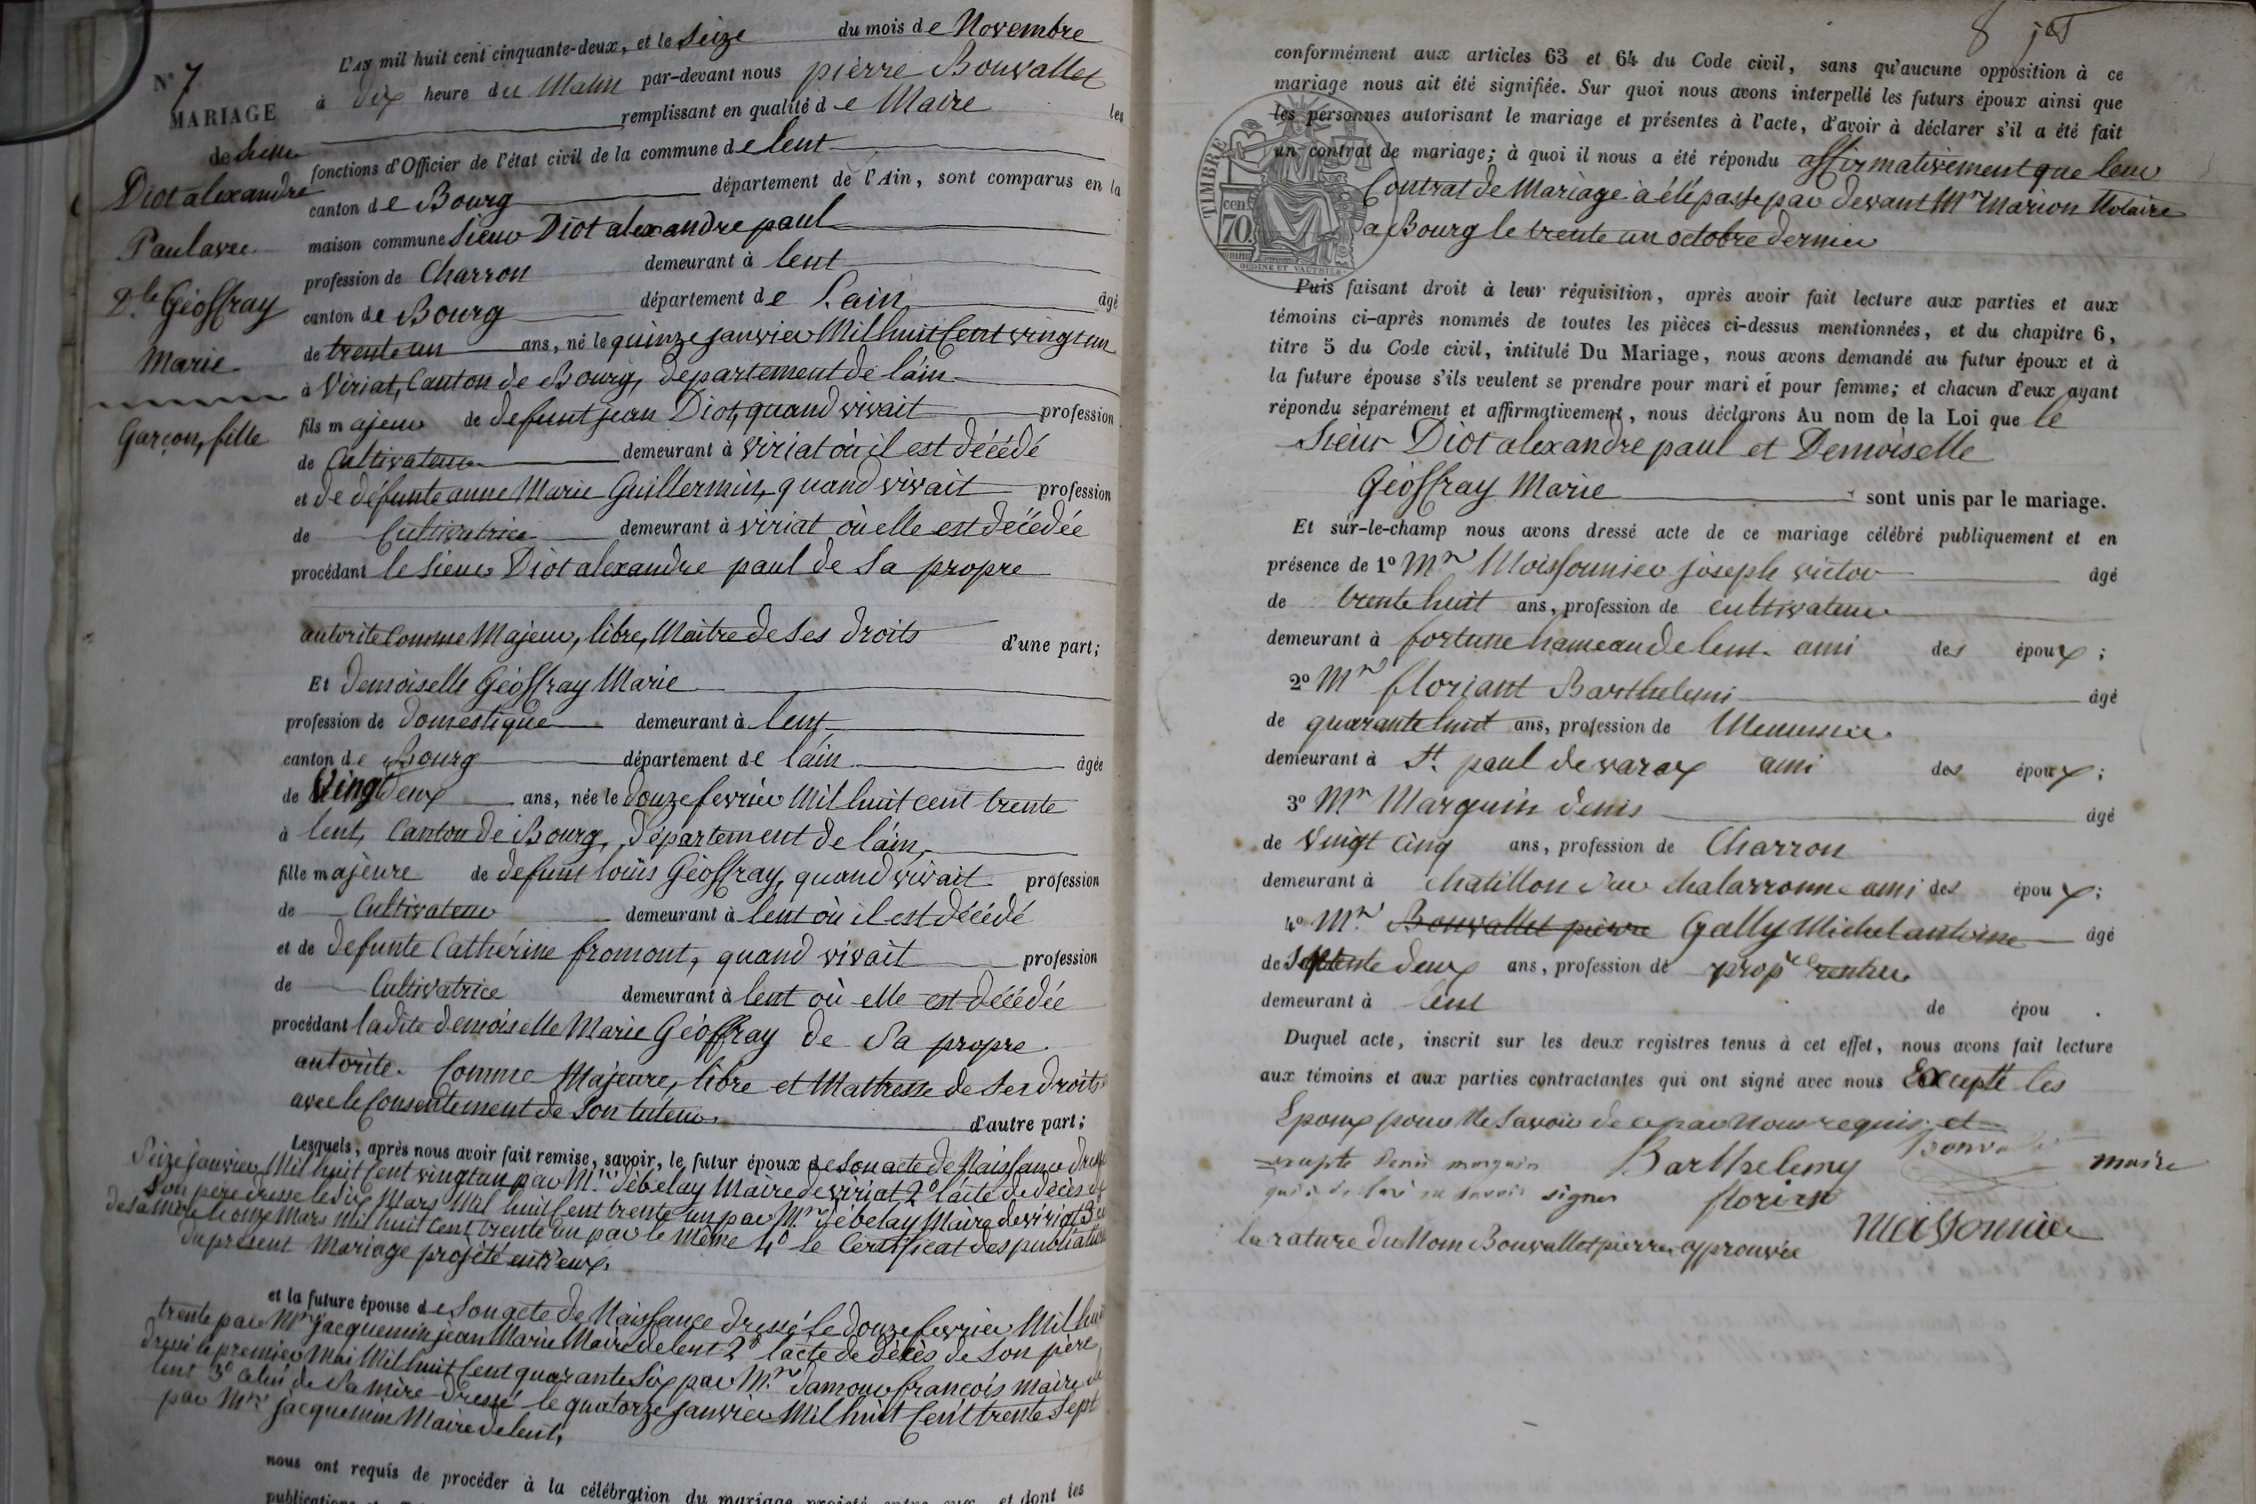 N° 7
MARIAGE
de Sieur
Diot alexandre
Paul avec
Dlle Géoffray
Marie
Garçon, fille
L'AN mil huit cent cinquante-deux, et le Seize du mois de Novembre
à dix heure du Matin par-devant nous pièrre Bouvallet
remplissant en qualité de Maire les
fonctions d'Officier de l'état civil de la commune de lent
canton de Bourg département de l'Ain, sont comparus en la
maison commune Sieur Diot alexandre paul
profession de Charron demeurant à lent
canton de Bourg département de l'ain âgé
de trente un ans, né le quinze janvier Mil huit Cent vingt un
à Viriat, Canton de Bourg, département de l'ain
fils majeur de defunt jean Diot, quand vivait profession
de Cultivateur demeurant à viriat où il est décédé
et de défunte anne Marie Guillermin, quand vivait profession
de Cultivatrice demeurant à viriat où elle est décédée
procédant le Sieur Diot alexandre paul de Sa propre
autorité Comme Majeur, libre, Maitre de Ses droits d'une part;
Et demoiselle Géoffray Marie
profession de domestique demeurant à lent
canton de Bourg département de l'ain âgée
de Vingt deux ans, née le douze fevrier Mil huit cent trente
à lent, Canton de Bourg, département de l'ain,
fille majeure de defunt louis Géoffray, quand vivait profession
de Cultivateur demeurant à lent où il est décédé
et de defunte Cathérine fromont, quand vivait profession
de Cultivatrice demeurant à lent où elle est décédée
procédant ladite demoiselle Marie Géoffray de Sa propre
autorité. Comme Majeure, libre et Maitresse de Ses droits
avec le Consentement de Son tuteur. d'autre part;
Lesquels, après nous avoir fait remise, savoir, le futur époux de Son acte de Naissance dressé
Seize janvier Mil huit Cent vingt un par Mr débelay Maire de viriat 2° l'acte de décès de
Son père dressé le dix Mars Mil huit Cent trente un par Mr débelay Maire de viriat 3°
de Sa Mère le onze Mars Mil huit Cent trente un par le Même 4° le Certificat des publications
du présent Mariage projété entr'eux.
et la future épouse de Son acte de Naissance dressé le douze fevrier Mil huit
trente par Mr jacquemin jean Marie Maire de lent 2° l'acte de décès de Son père
dressé le premier Mai Mil huit Cent quarante Six par Mr damour françois maire de
lent 3° Celui de Sa Mère dressé le quatorze janvier Mil huit Cent trente Sept
par Mr jacquemin Maire de lent,
nous ont requis de procéder à la célébration du mariage projeté entre eux, et dont les
8
conformément aux articles 63 et 64 du Code civil, sans qu'aucune opposition à ce
mariage nous ait été signifiée. Sur quoi nous avons interpellé les futurs époux ainsi que
les personnes autorisant le mariage et présentes à l'acte, d'avoir à déclarer s'il a été fait
un contrat de mariage; à quoi il nous a été répondu affirmativement que leur
Contrat de Mariage à été passé par devant Mr Marion Notaire
a Bourg le trente un octobre dernier
TIMBRE
cen.
70.
Puis faisant droit à leur réquisition, après avoir fait lecture aux parties et aux
témoins ci-après nommés de toutes les pièces ci-dessus mentionnées, et du chapitre 6,
titre 5 du Code civil, intitulé Du Mariage, nous avons demandé au futur époux et à
la future épouse s'ils veulent se prendre pour mari et pour femme; et chacun d'eux ayant
répondu séparément et affirmativement, nous déclarons Au nom de la Loi que le
Sieur Diot alexandre paul et Demoiselle
Géoffray Marie sont unis par le mariage.
Et sur-le-champ nous avons dressé acte de ce mariage célébré publiquement et en
présence de 1° Mr Moissonnier joseph victor âgé
de trente huit ans, profession de cultivateur
demeurant à fortune hameau de lent. ami des époux;
2° Mr floriant Barthelemi âgé
de quarante huit ans, profession de Menuisier
demeurant à St. paul de varax ami des époux;
3° Mr Marguin denis âgé
de Vingt Cinq ans, profession de Charron
demeurant à chatillon Sur chalaronne ami des époux;
4° Mr. Bouvallet pièrre Gally Michel antoine âgé
de Septente deux ans, profession de propre rentier
demeurant à lent de épou .
Duquel acte, inscrit sur les deux registres tenus à cet effet, nous avons fait lecture
aux témoins et aux parties contractantes qui ont signé avec nous Excepté les
Epoux pour Ne Savoir de ce par Nous requis. et
excepté Denis marguin Barthelemy Bouvallet maire
qui a déclaré ne savoir signer florian
la rature du Nom Bouvallet pierre approuvée Moissonnier